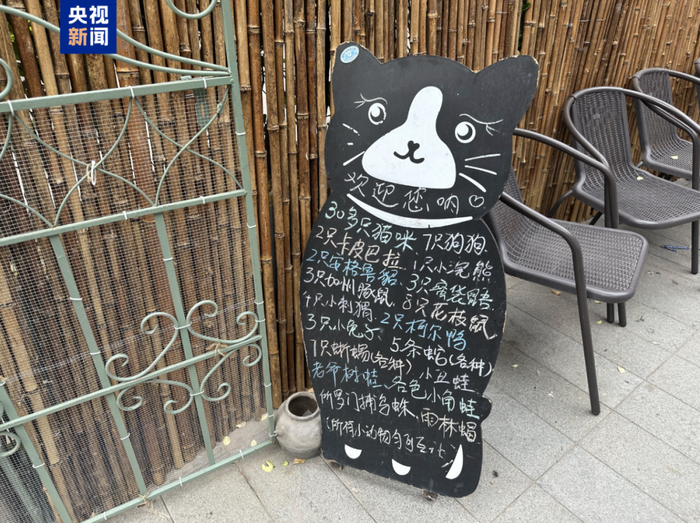 央视
新闻
欢迎您呐
30多只猫咪、7只狗狗
2只卡皮巴拉、1只小浣熊
2只安格鲁貂、3只蜜袋鼯
3只加州豚鼠
4只小刺猬、8只花枝鼠
3只小兔子、2只柯尔鸭
7只蜥蜴(各种)、5条蛇(各种)
老爷树蛙、各色小角蛙
小丑蛙
所罗门捕鸟蛛、雨林蝎
(所有小动物均可互动)